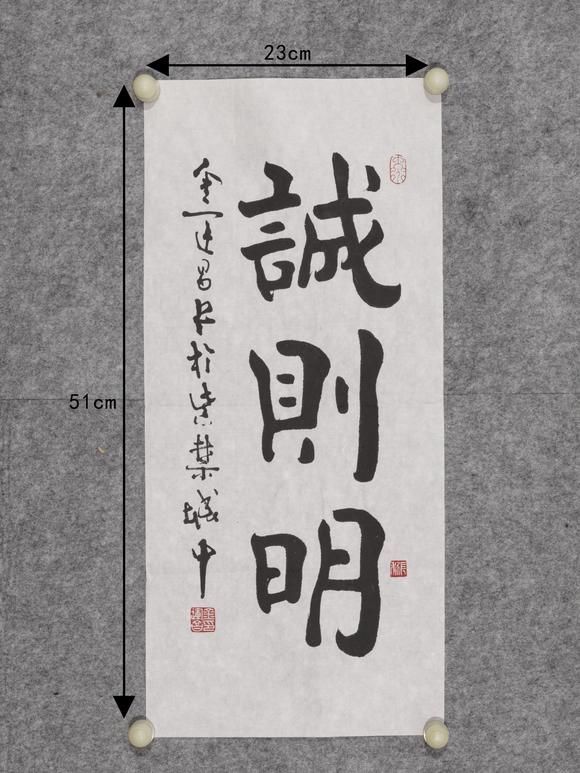 23cm
51cm
誠則明
金运昌书於紫禁城中